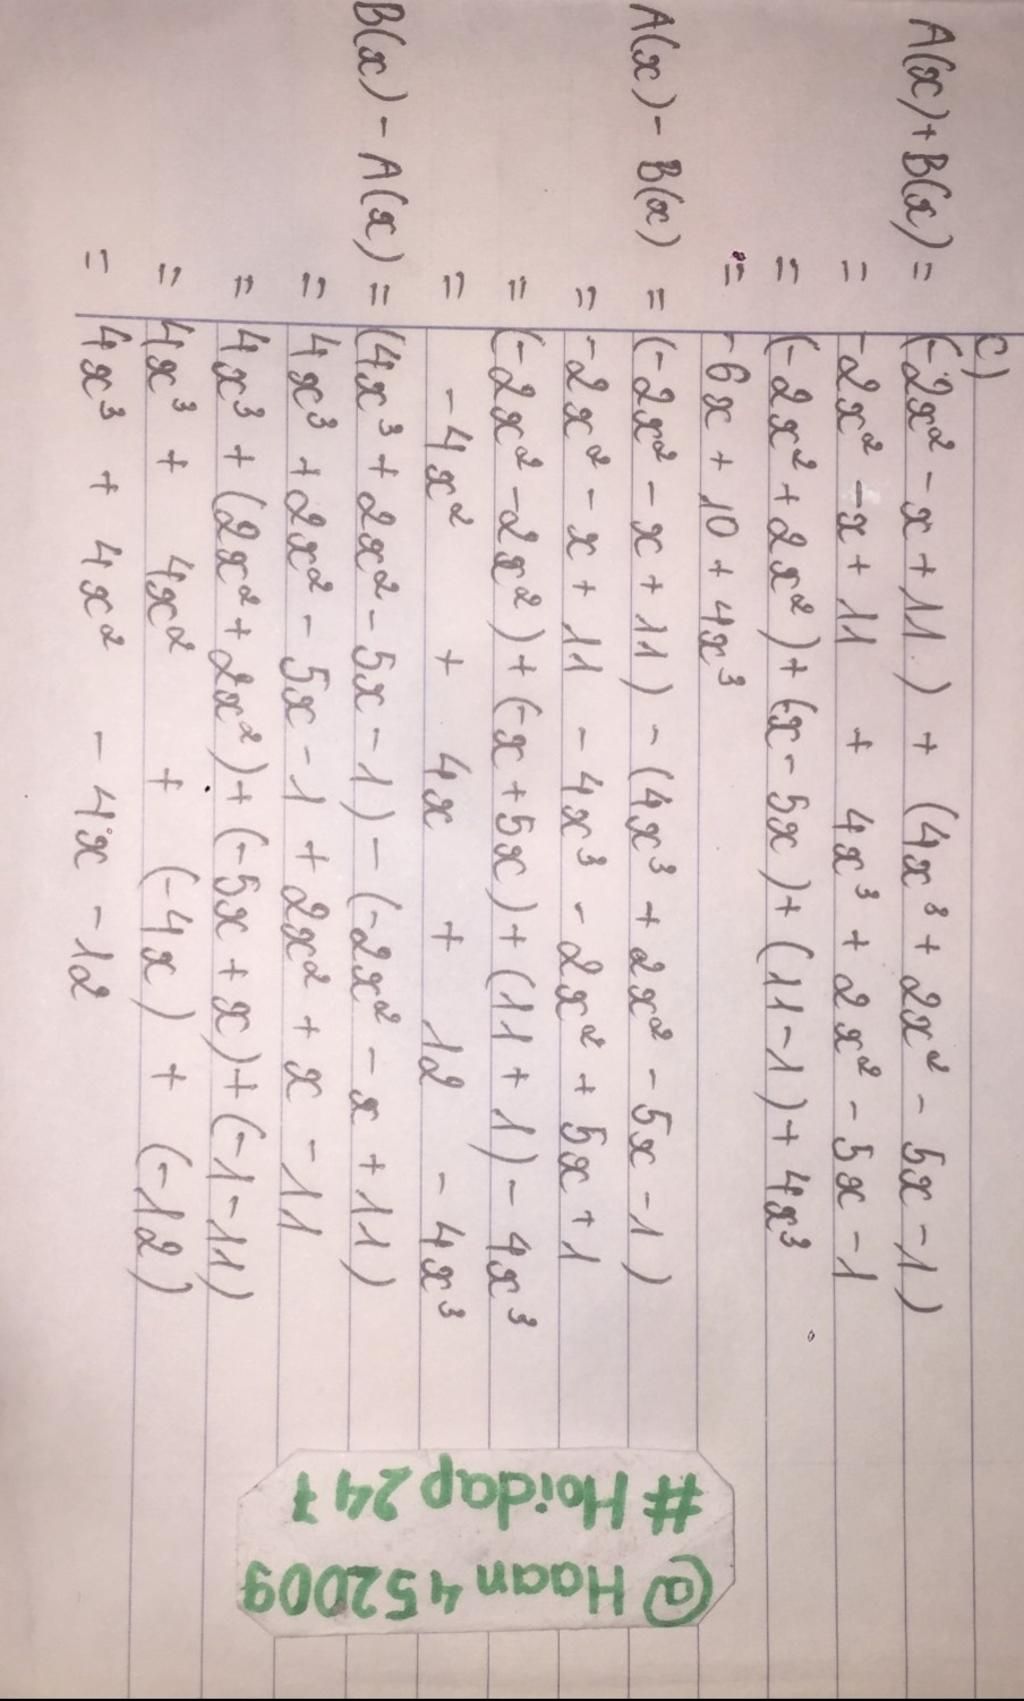 c)
A(x) + B(x) = (-2x² - x + 11) + (4x³ + 2x² - 5x - 1)
= -2x² - x + 11 + 4x³ + 2x² - 5x - 1
= (-2x² + 2x²) + (-x - 5x) + (11 - 1) + 4x³
= -6x + 10 + 4x³
A(x) - B(x) = (-2x² - x + 11) - (4x³ + 2x² - 5x - 1)
= -2x² - x + 11 - 4x³ - 2x² + 5x + 1
= (-2x² - 2x²) + (-x + 5x) + (11 + 1) - 4x³
= -4x² + 4x + 12 - 4x³
B(x) - A(x) = (4x³ + 2x² - 5x - 1) - (-2x² - x + 11)
= 4x³ + 2x² - 5x - 1 + 2x² + x - 11
= 4x³ + (2x² + 2x²) + (-5x + x) + (-1 - 11)
= 4x³ + 4x² + (-4x) + (-12)
= 4x³ + 4x² - 4x - 12
@Haan452009
#Hoidap247